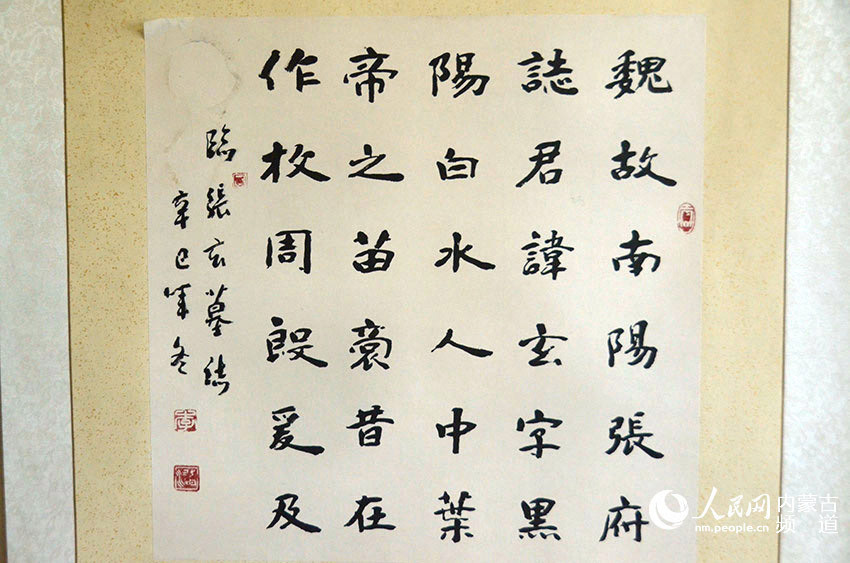 魏故南陽張府
誌君諱玄字黑
陽白水人中葉
帝之苗裔昔在
作牧周殷爰及
臨張玄墓誌
辛巳年冬
人民网 内蒙古频道
nm.people.cn